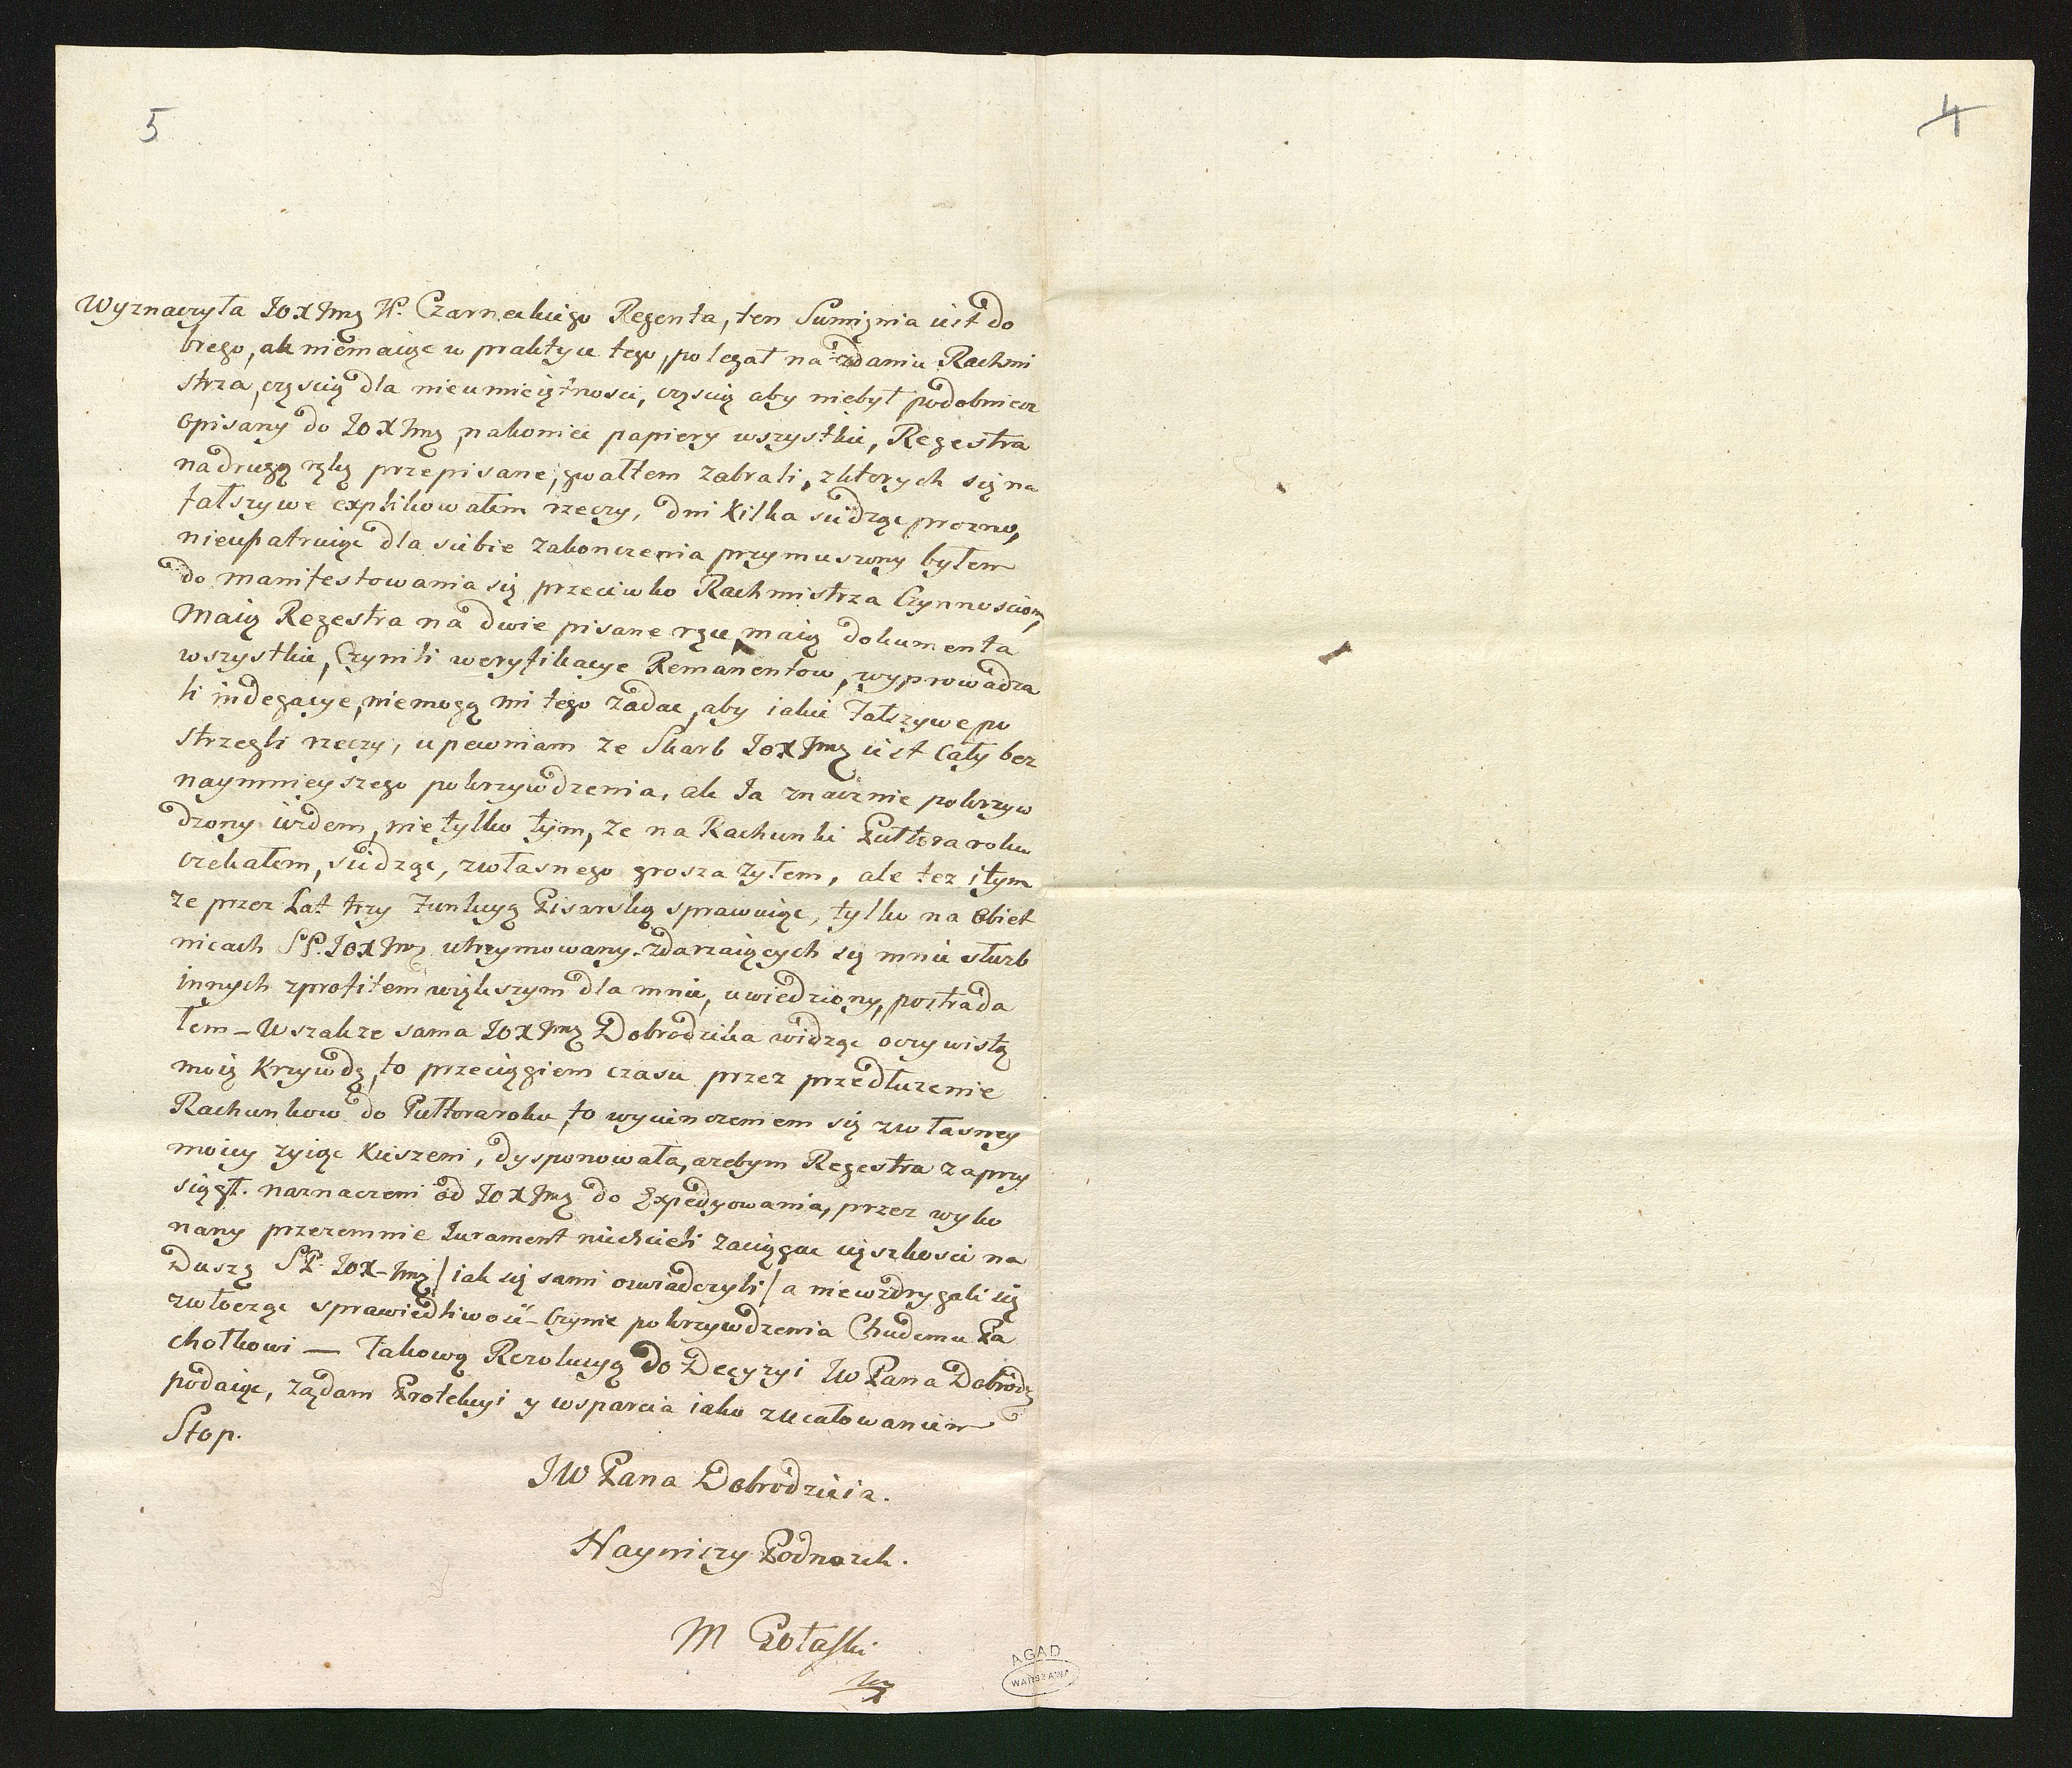 5
4
Wyznaczyła JOX Jmę W. Czarneckiego Regenta, ten Sumięnia iest do
brego, ale niemaiąc w praktyce tego, polegał na zdaniu Rachmi
strza, częscią dla nieumieiętnosci, częscią aby niebył podobniesz
opisany do JOX Jmę, nakoniec papiery wszystkie, Regestra
na drugą rękę przepisane, gwałtem zabrali, z ktorych się na
fałszywe explikowałem rzeczy, dni kilka siedząc prozno,
nieupatruiąc dla siebie zakonczenia przymuszony byłem
do manifestowania się przeciwko Rachmistrza Czynnosciom,
Maią Regestra na dwie pisane ręce, maią dokumenta
wszystkie, Czynili weryfikacye Remanentow, wyprowadza
li indegacye, niemogą mi tego zadac, aby iakie fałszywe po
strzegli rzeczy, upewniam ze Skarb JOX Jmę iest cały bez
naymnieyszego pokrzywdzenia, ale Ja znacznie pokrzyw
dzony iezdem, nie tylko tym, ze na Rachunki Pułtora roku
czekałem, siedząc, z własnego grosza zyłem, ale tez i tym
ze przez Lat trzy Funkcyą Pisarską sprawuiąc, tylko na obiet
nicach SP. JOX Jmę utrzymowany zdarzaiących się mnie służb
innych z profitem większym dla mnie, uwiedziony, postrada
łem – Wszakze sama JOX Jmę Dobrodzika widząc oczywistą
moią Krzywdę, to przeciągiem czasu przez przedłuzenie
Rachunkow do Pułtoraroku, to wycienczeniem się z własney
moiey zyiąc Kieszeni, dysponowała, azebym Regestra zaprzy
siągł. naznaczeni od JOX Jmę do Expedyowania, przez wyko
nany przezemnie Jurament niechcieli zaciągac ciężkosci na
Duszę SP. JOX-Jmę / iak się sami oswiadczyli / a niewzdrygali się
zwłocząc sprawiedliwosć – Czynic pokrzywdzenia Chudemu Pa
chołkowi — Takową Rezolucyą do Decyzyi JW Pana Dobrodz
podaiąc, ządam Protekcyi y wsparcia iako z ucałowaniem
Stop.
JW Pana Dobrodzieia.
Nayniższy Podnozek.
M Połaski
AGAD
WARSZAWA